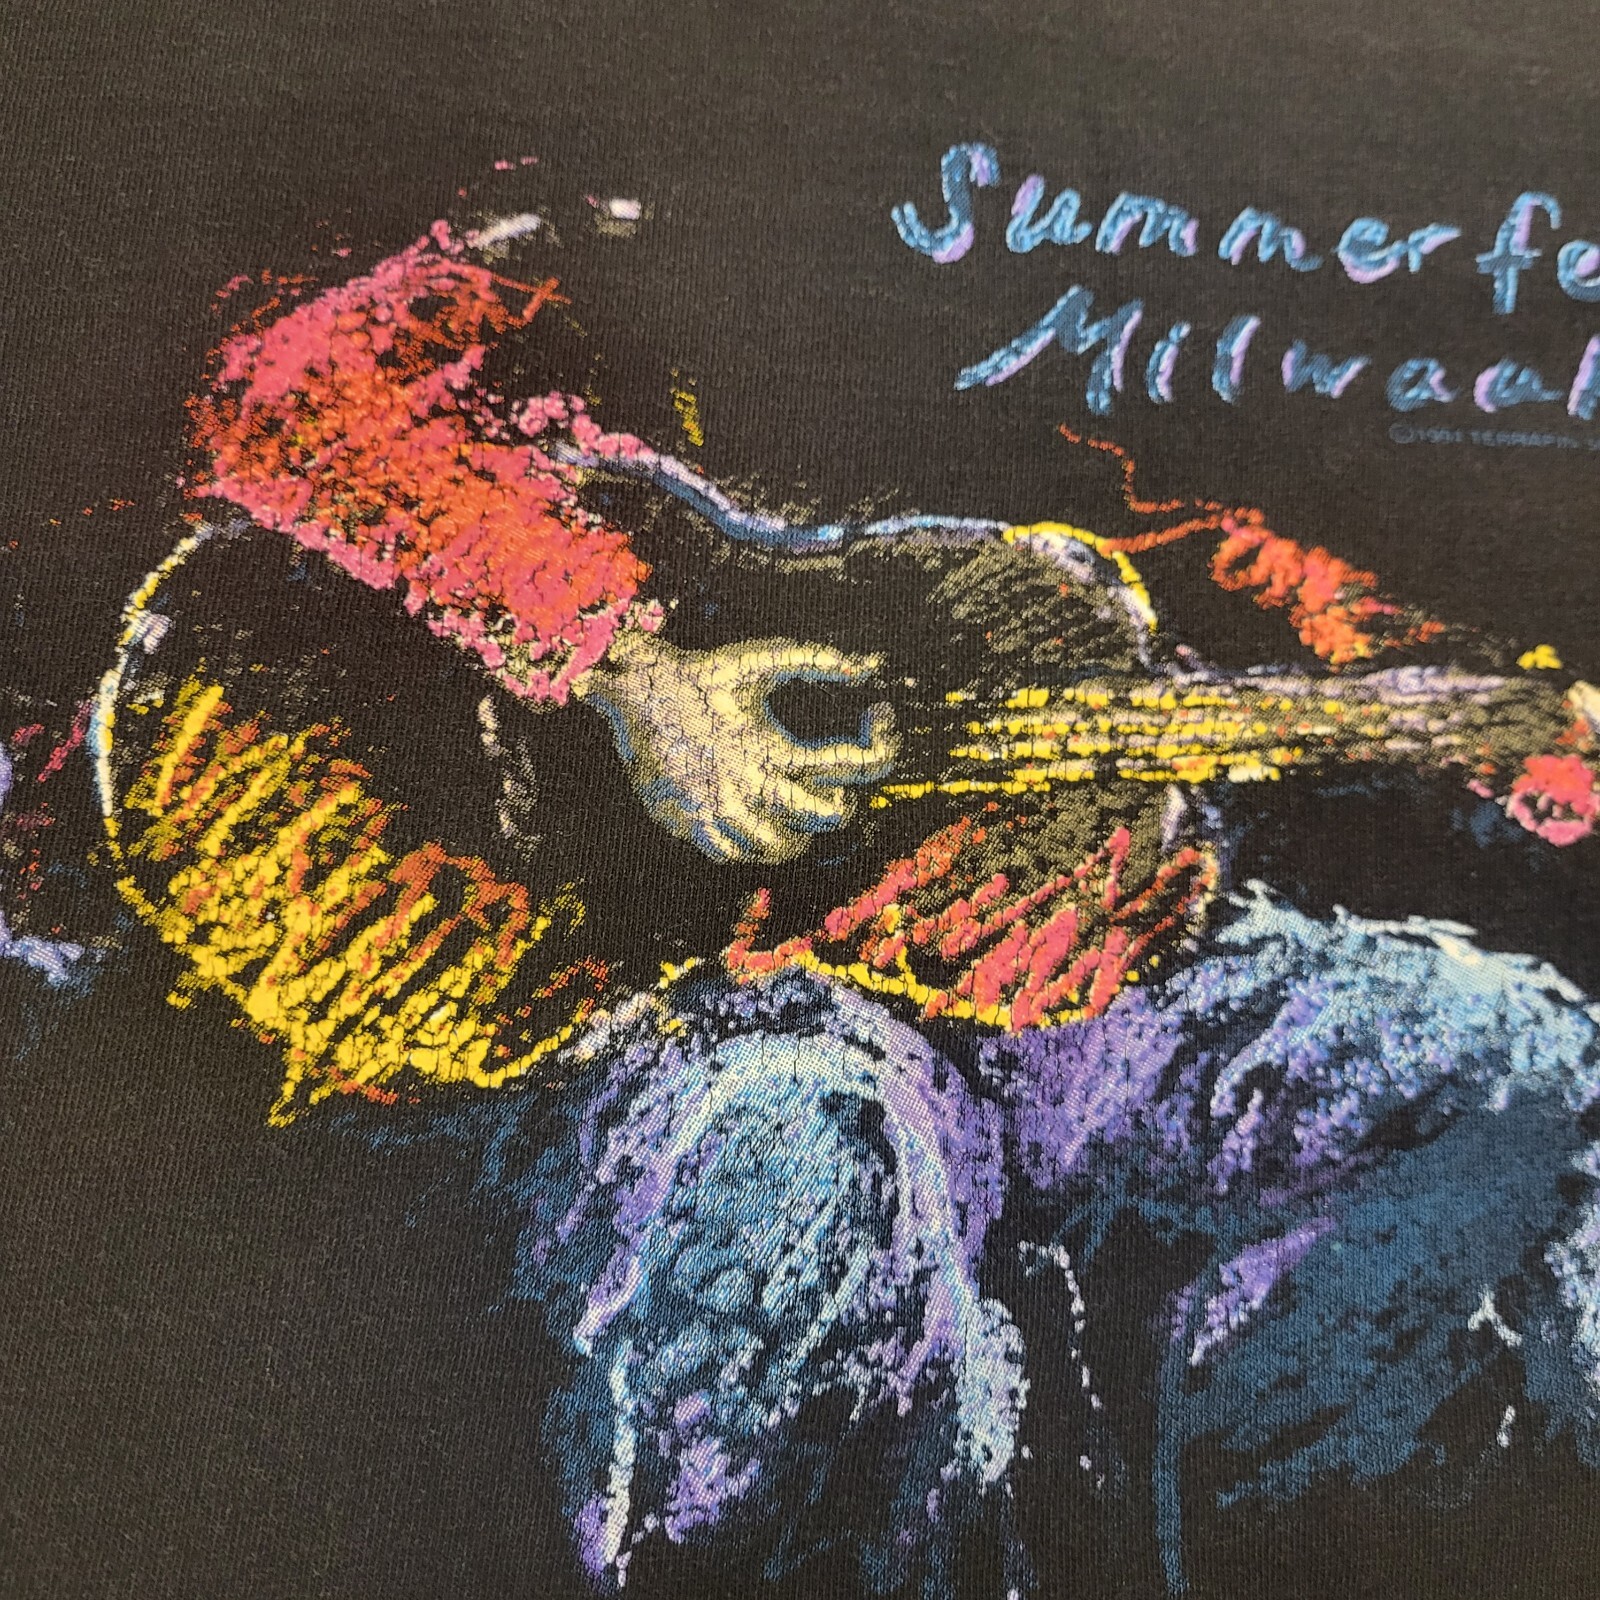 Summerfe
Milwauk
©1991 TERRAPIN